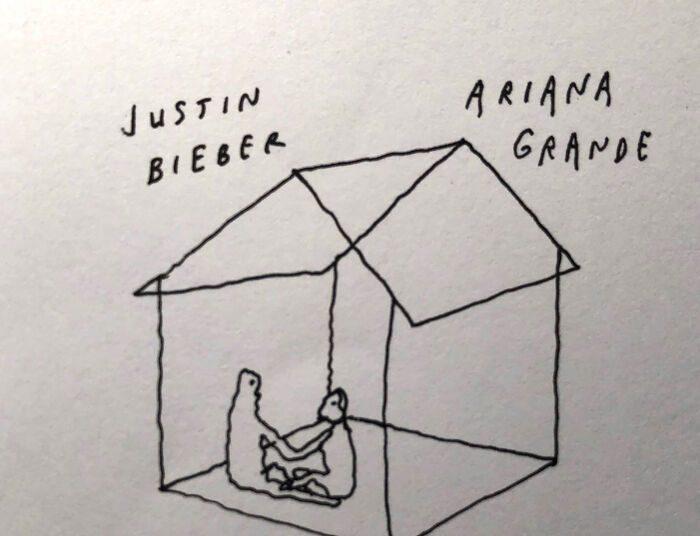 JUSTIN
BIEBER
ARIANA
GRANDE